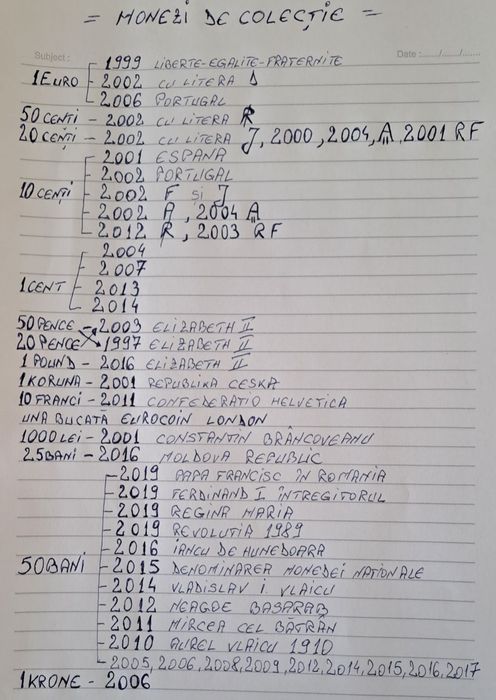 = MONEZI DE COLECȚIE =
Subject : Date : ...../...../.....
1999 LIBERTE-EGALITE-FRATERNITE
1EURO 2002 CU LITERA D
2006 PORTUGAL
50 CENTI - 2002 CU LITERA R
20 CENȚI - 2002 CU LITERA J, 2000, 2004, A, 2001 RF
2001 ESPANA
2002 PORTUGAL
10 CENȚI 2002 F ȘI J
2002 A, 2004 A
2012 R, 2003 RF
2004
2007
1CENT 2013
2014
50 PENCE - 2009 ELIZABETH II
20 PENCE 1997 ELIZABETH II
1 POUND - 2016 ELIZABETH II
1 KORUNA - 2001 REPUBLIKA CESKA
10 FRANCI - 2011 CONFEDERATIO HELVETICA
UNA BUCATĂ EUROCOIN LONDON
1000 LEI - 2001 CONSTANTIN BRÂNCOVEANU
25 BANI - 2016 MOLDOVA REPUBLIC
2019 PAPA FRANCISC ÎN ROMANIA
2019 FERDINAND I ÎNTREGITORUL
2019 REGINA MARIA
2019 REVOLUTIA 1989
2016 IANCU DE HUNEDOARA
50BANI 2015 DENOMINAREA MONEDEI NATIONALE
2014 VLADISLAV I VLAICU
2012 NEAGOE BASARAB
2011 MIRCEA CEL BĂTRÂN
2010 AUREL VLAICU 1910
2005, 2006, 2008, 2009, 2012, 2014, 2015, 2016, 2017
1 KRONE - 2006